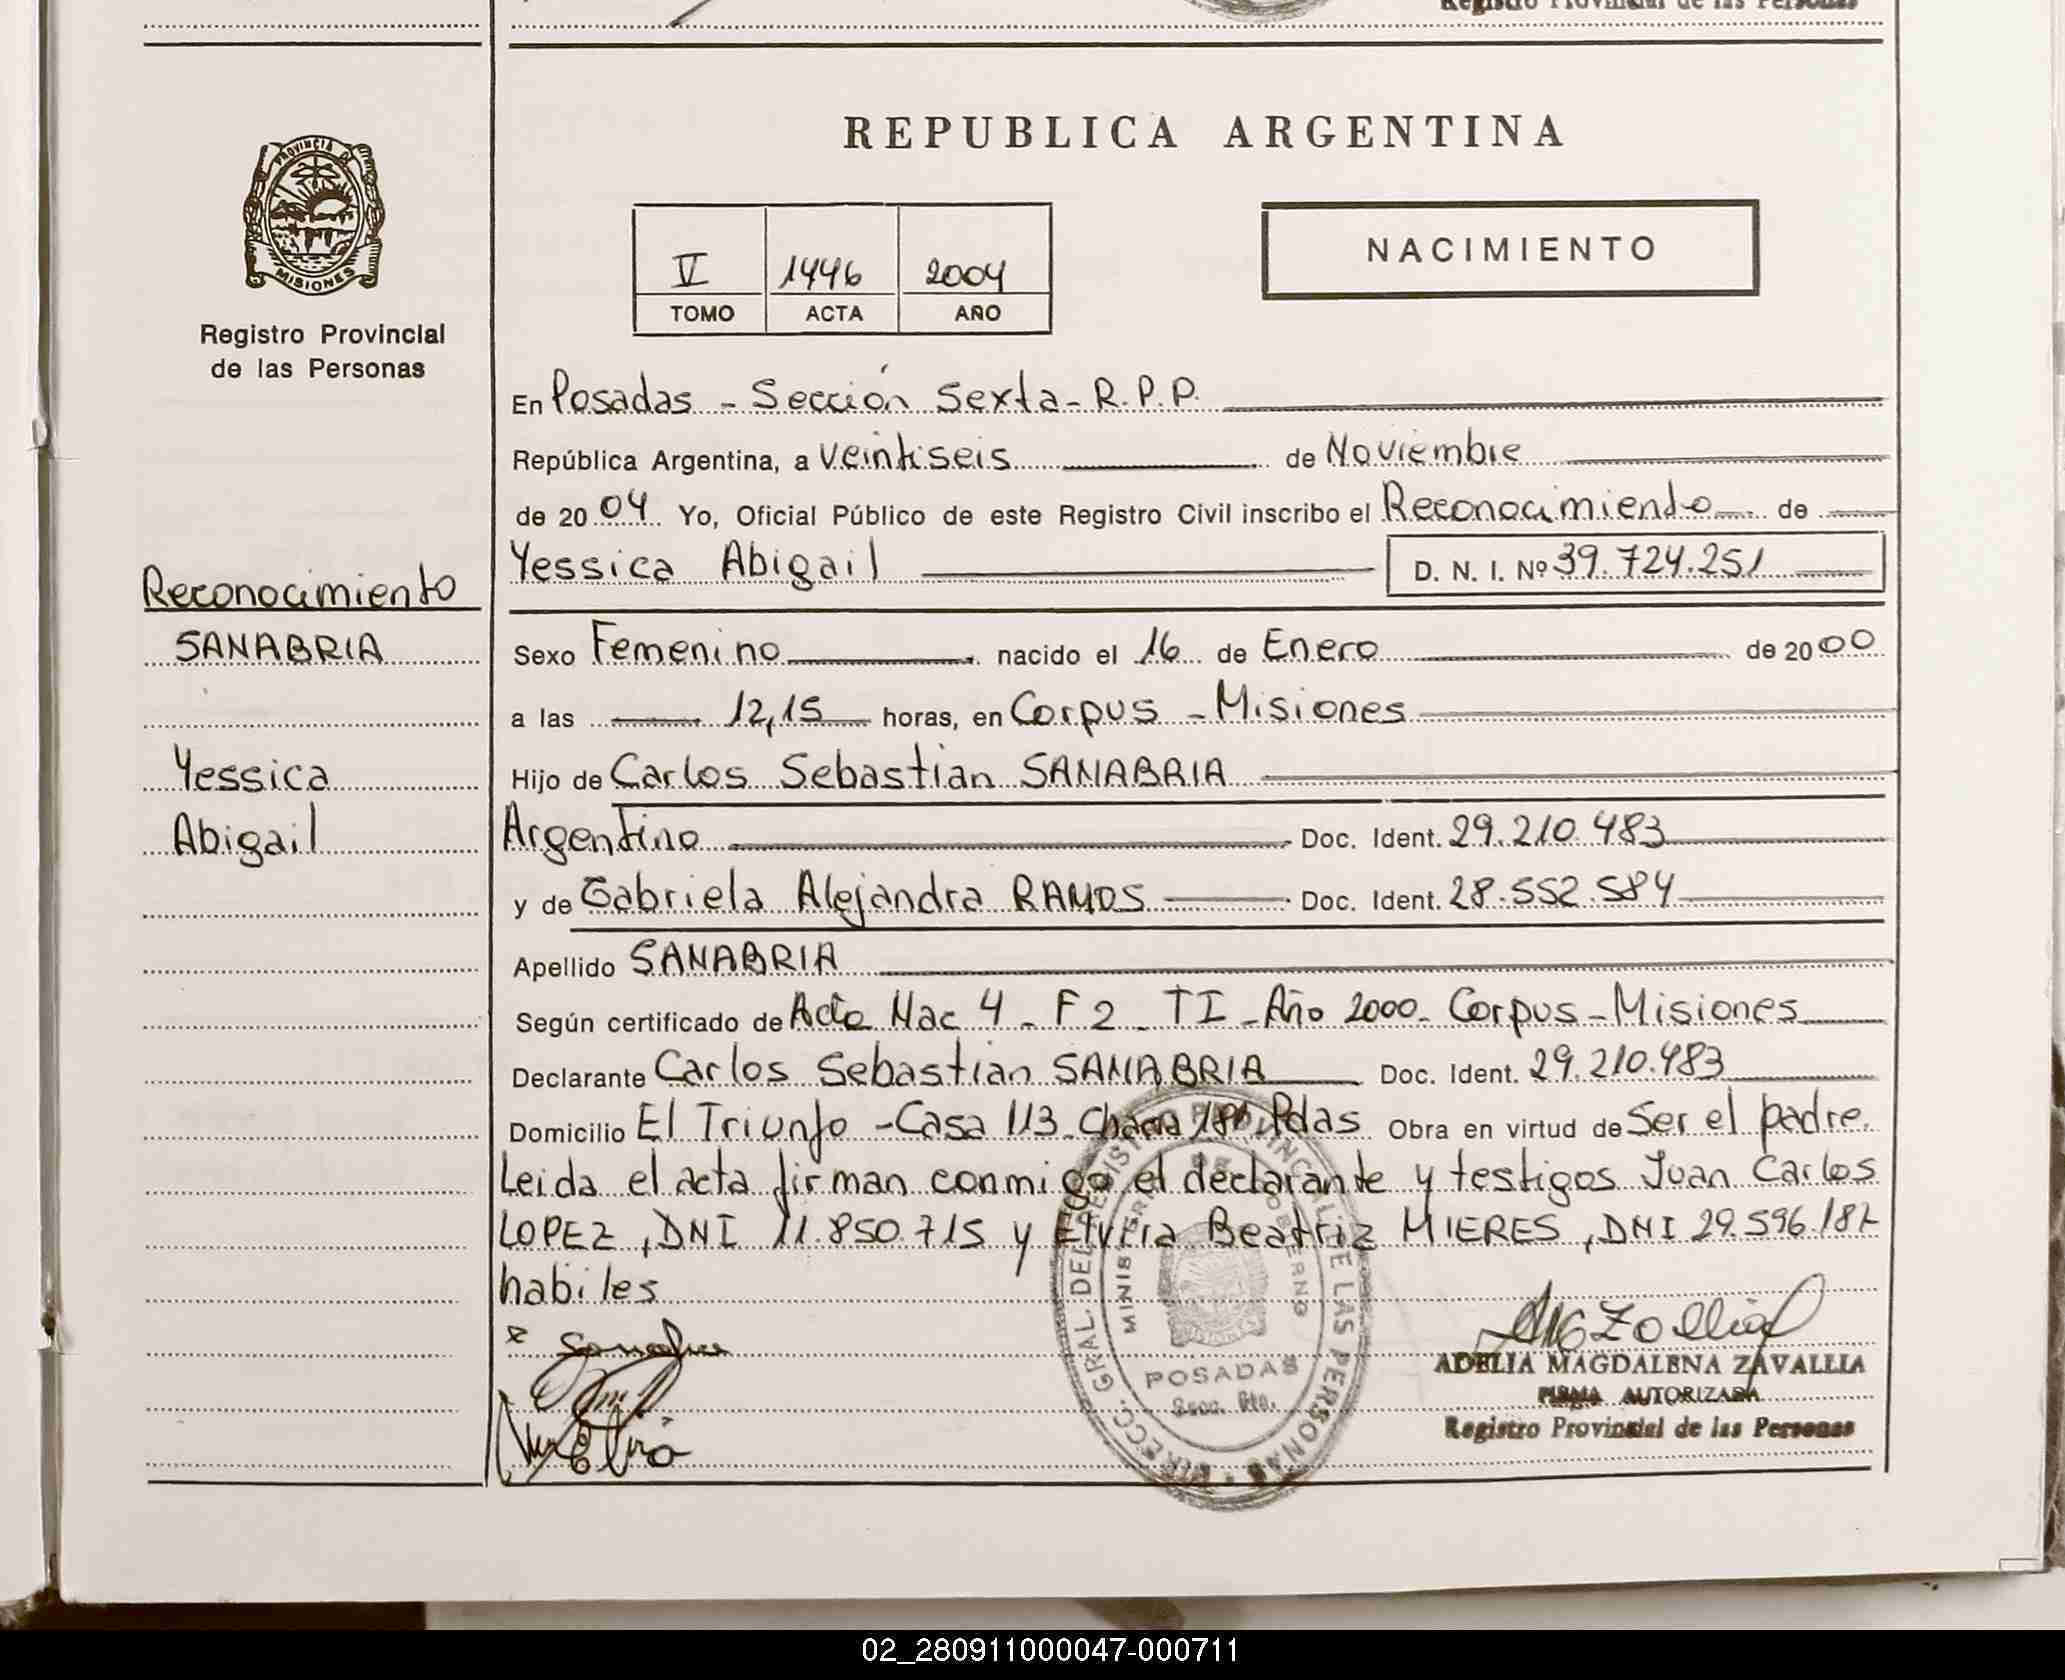 Registro Provincial de las Personas
REPUBLICA ARGENTINA
PROVINCIA DE
MISIONES
Registro Provincial
de las Personas
V 1446 2004
TOMO ACTA AÑO
NACIMIENTO
En Posadas - Sección Sexta - R.P.P.
República Argentina, a Veintiseis de Noviembre
de 2004 Yo, Oficial Público de este Registro Civil inscribo el Reconocimiento de
Yessica Abigail D. N. I. Nº 39.724.251
Reconocimiento
SANABRIA
Yessica
Abigail
Sexo Femenino nacido el 16 de Enero de 2000
a las 12,15 horas, en Corpus - Misiones
Hijo de Carlos Sebastian SANABRIA
Argentino Doc. Ident. 29.210.483
y de Gabriela Alejandra RAMOS Doc. Ident. 28.552.584
Apellido SANABRIA
Según certificado de Acta Nac 4 - F 2 - TI - Año 2000 - Corpus - Misiones
Declarante Carlos Sebastian SANABRIA Doc. Ident. 29.210.483
Domicilio El Triunfo - Casa 113 - Chacra Pdas Obra en virtud de Ser el padre.
Leida el acta firman conmigo el declarante y testigos Juan Carlos
LOPEZ, DNI 11.850.715 y Elvira Beatriz MIERES, DNI 29.596.187
habiles
DIRECC. GRAL. DEL REGISTRO PROVINCIAL DE LAS PERSONAS
MINISTERIO DE GOBIERNO
POSADAS
Secc. 6ta.
ADELIA MAGDALENA ZAVALLIA
FIRMA AUTORIZADA
Registro Provincial de las Personas
02_280911000047-000711